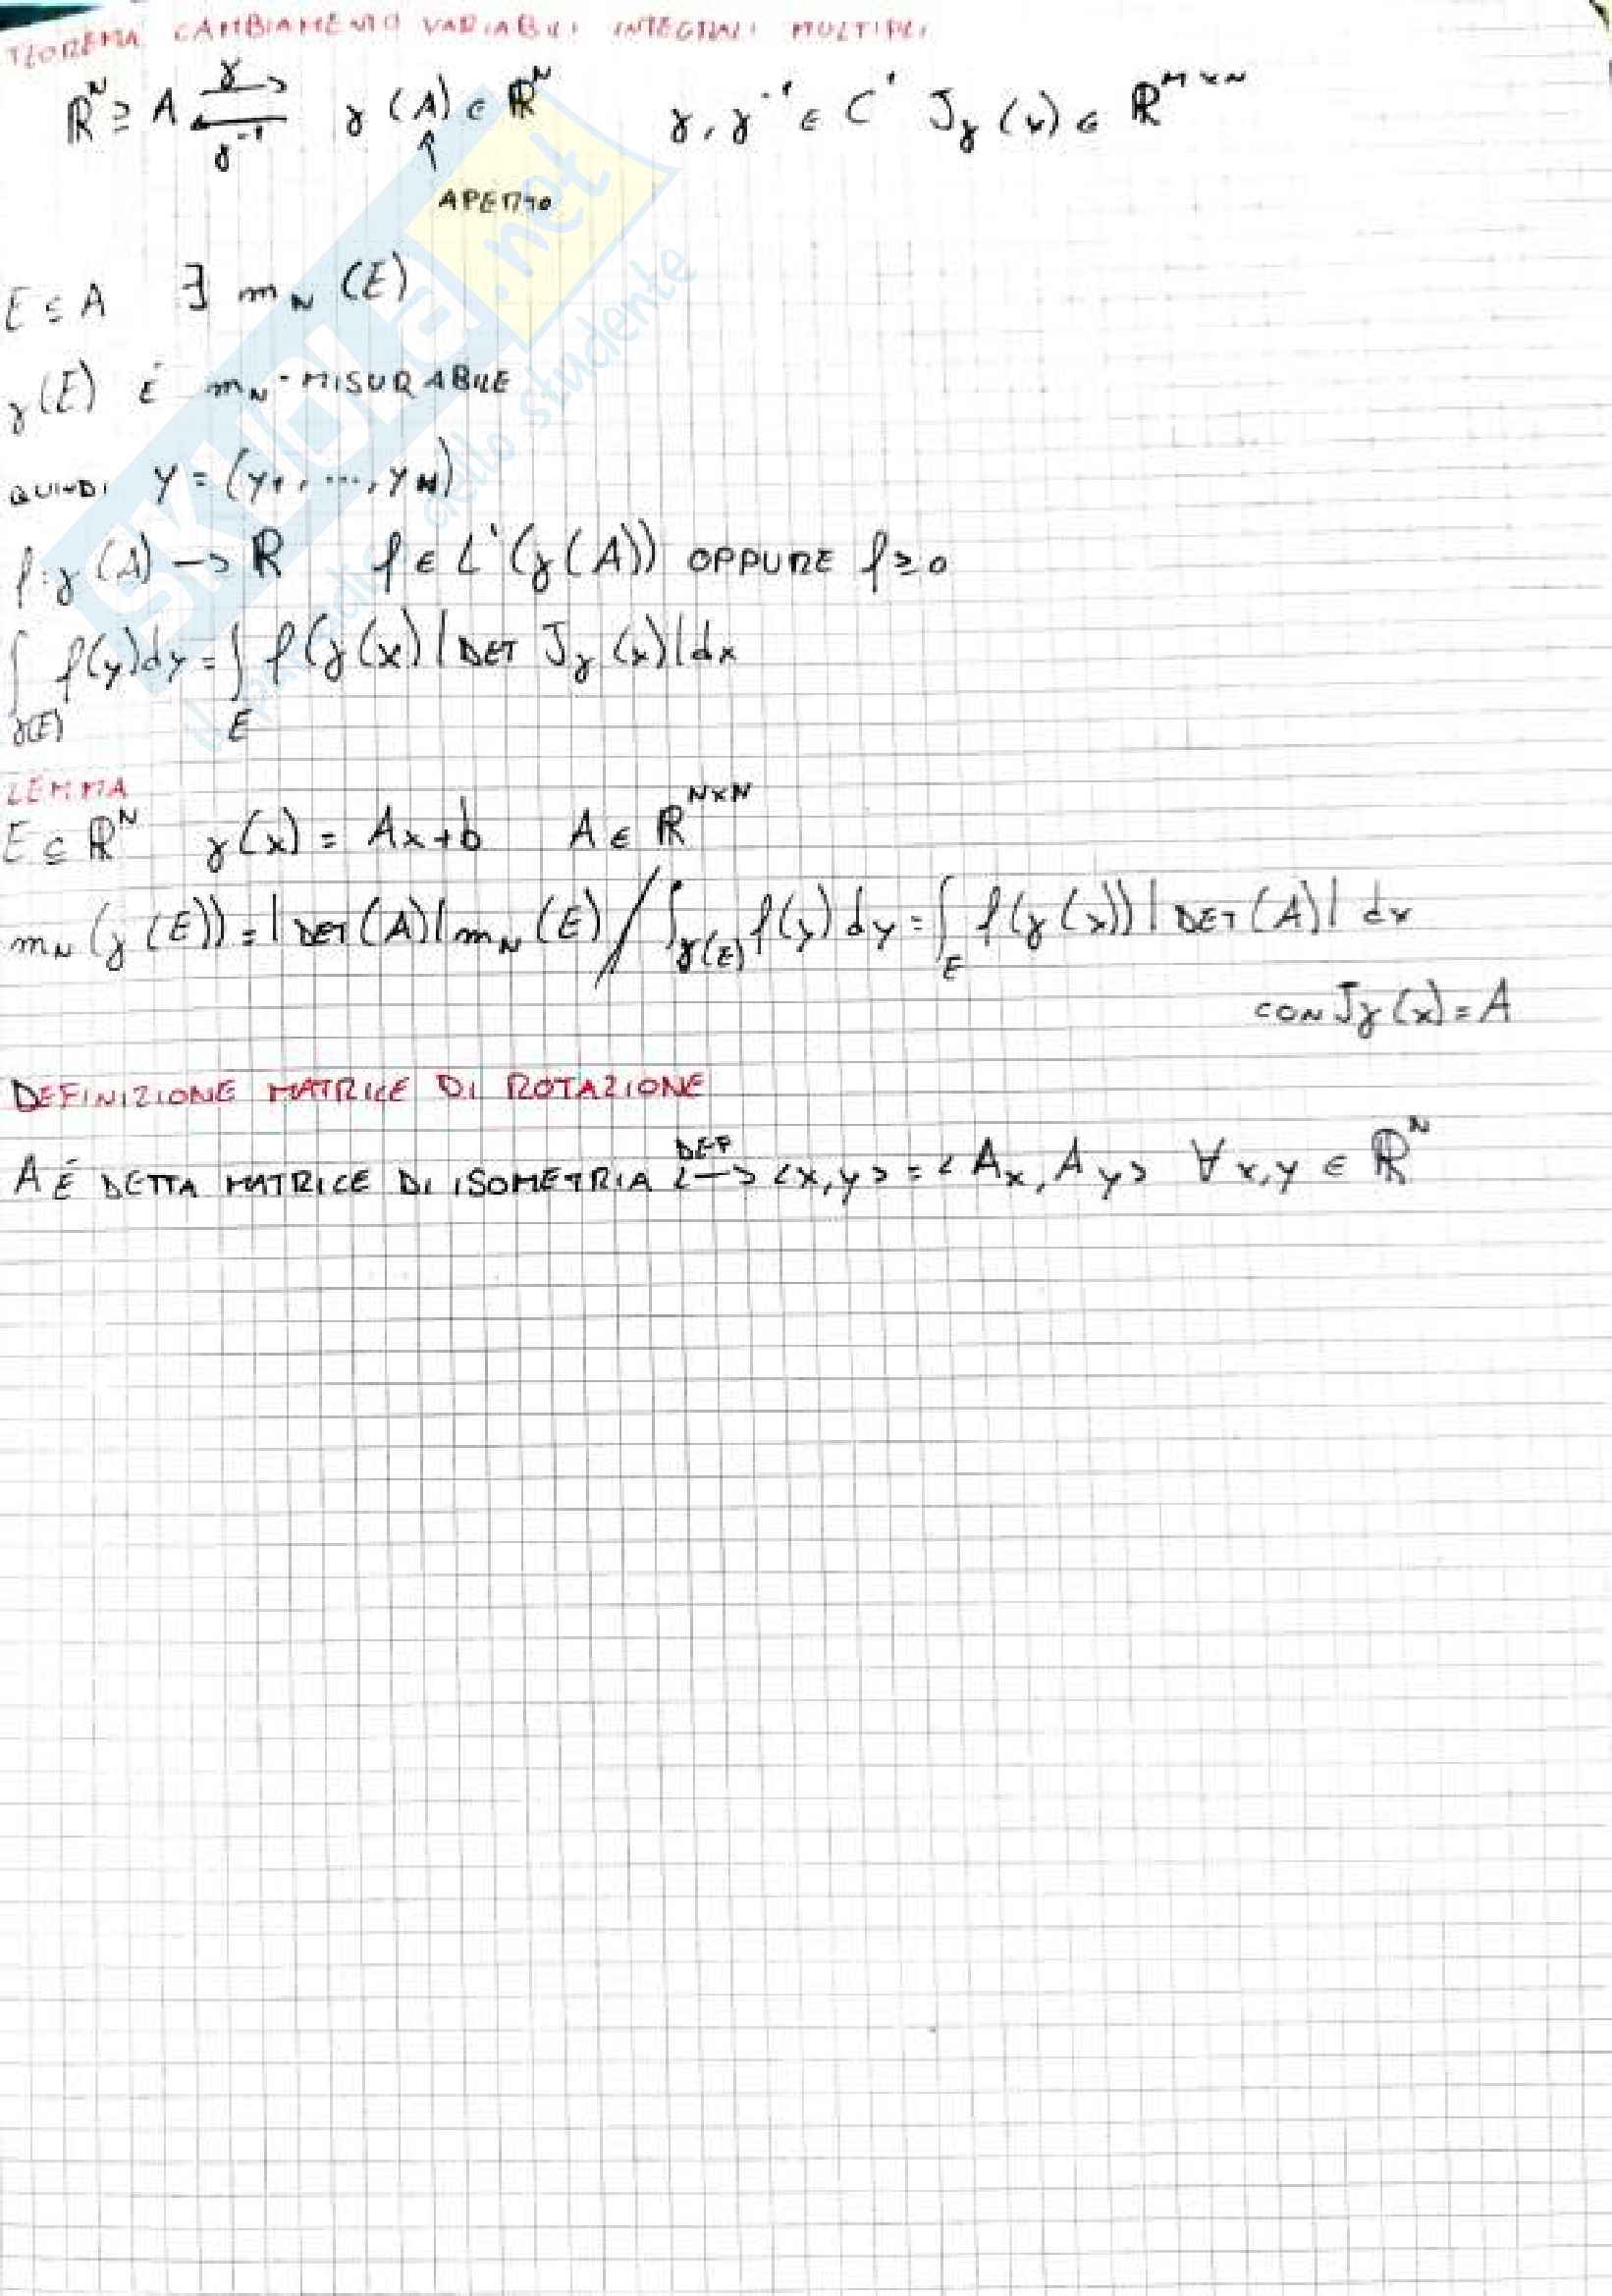 TEOREMA CAMBIAMENTO VARIABILI INTEGRALI MULTIPLI
ℝᴺ ⊇ A ⇄ γ(A) ∈ ℝᴺ γ, γ⁻¹ ∈ C¹ Jγ(x) ∈ ℝᴹˣᴺ
γ
γ⁻¹
↑
APERTO
E ⊆ A ∃ m_N (E)
γ(E) È m_N-MISURABILE
QUINDI y = (y₁, ..., y_N)
f: γ(A) → ℝ f ∈ L¹(γ(A)) OPPURE f ≥ 0
∫_γ(E) f(y)dy = ∫_E f(γ(x)|DET Jγ(x)|dx
LEMMA
E ⊆ ℝᴺ γ(x) = Ax+b A ∈ ℝᴺˣᴺ
m_N(γ(E)) = |DET(A)|m_N(E) / ∫_γ(E) f(y)dy = ∫_E f(γ(x))|DET(A)|dx
CON Jγ(x) = A
DEFINIZIONE MATRICE DI ROTAZIONE
A È DETTA MATRICE DI ISOMETRIA <—DEF—> <x,y> = <Ax, Ay> ∀x,y ∈ ℝᴺ
SKUOLA.net
dalla parte dello studente